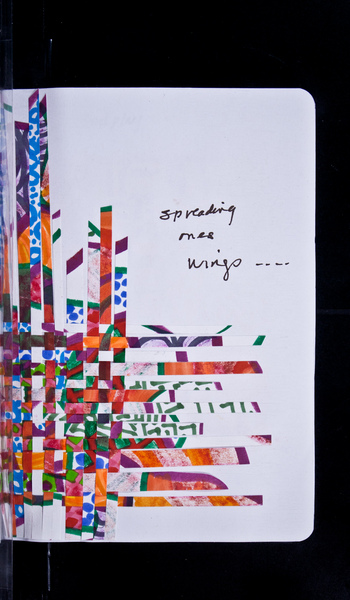 spreading
ones
wings ----